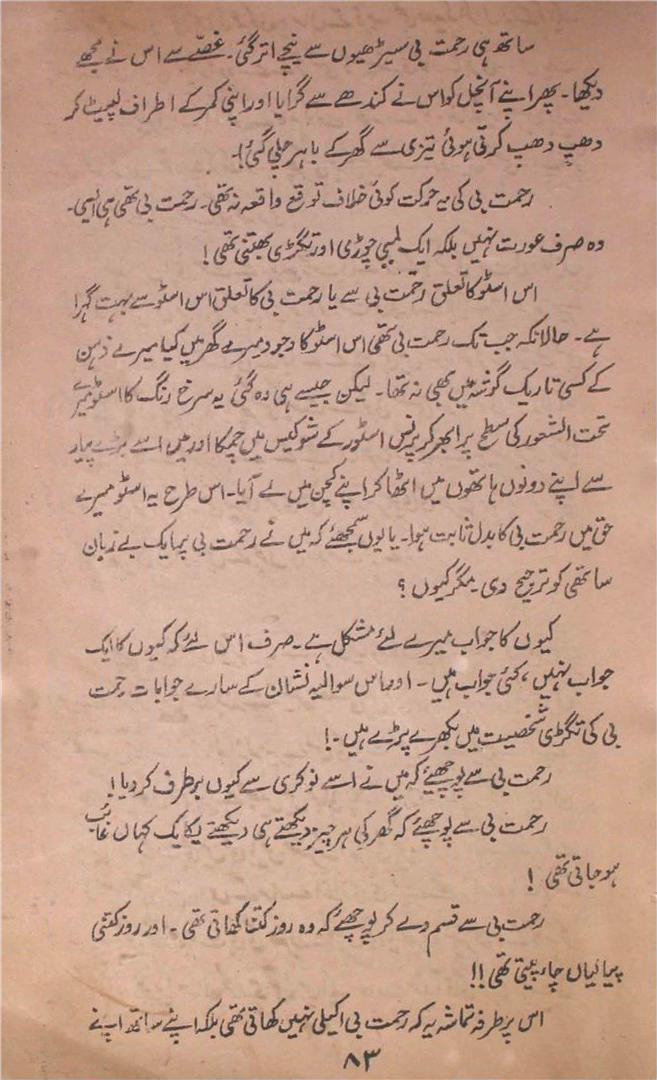 ساتھ ہی رحمت بی سیڑھیوں سے نیچے اتر گئی۔ غصّے سے اس نے مجھے
دیکھا۔ پھر اپنے آنچل کو اس نے کندھے سے گرایا اور اپنی کمر کے اطراف لپیٹ کر
دھپ دھپ کرتی ہوئی تیزی سے گھر کے باہر چلی گئی!۔
رحمت بی کی یہ حرکت کوئی خلاف توقع واقعہ نہ تھی۔ رحمت بی تھی ہی ایسی۔
وہ صرف عورت نہیں بلکہ ایک لمبی چوڑی اور تگڑی بھتنی تھی!
اس اسٹو کا تعلق رحمت بی سے یا رحمت بی کا تعلق اس اسٹو سے بہت گہرا
ہے۔ حالانکہ جب تک رحمت بی تھی اس اسٹو کا وجود میرے گھر میں کیا میرے ذہن
کے کسی تاریک گوشہ میں بھی نہ تھا۔ لیکن جیسے ہی وہ گئی یہ سرخ رنگ کا اسٹو میرے
تحت الشعور کی سطح پر ابھر کر پرنس اسٹور کے شوکیس میں چمکا اور میں اسے بڑے پیار
سے اپنے دونوں ہاتھوں میں اٹھا کر اپنے کچن میں لے آیا۔ اس طرح یہ اسٹو میرے
حق میں رحمت بی کا بدل ثابت ہوا۔ یا یوں سمجھئے کہ میں نے رحمت بی پر ایک بے زبان
ساتھی کو ترجیح دی۔ مگر کیوں؟
کیوں کا جواب میرے لئے مشکل ہے۔ صرف اس لئے کہ کیوں کا ایک
جواب نہیں، کئی جواب ہیں۔ اور اس سوالیہ نشان کے سارے جوابات رحمت
بی کی تگڑی شخصیت میں بکھرے پڑے ہیں۔!
رحمت بی سے پوچھیئے کہ میں نے اسے نوکری سے کیوں برطرف کر دیا!
رحمت بی سے پوچھئے کہ گھر کی ہر چیز دیکھتے ہی دیکھتے یکایک کہاں غائب
ہو جاتی تھی!
رحمت بی سے قسم دے کر پوچھئے کہ وہ روز کتنا کھاتی تھی۔ اور روز کتنی
پیالیاں چاء پیتی تھی!!
اس پر طرفہ تماشہ یہ کہ رحمت بی اکیلی نہیں کھاتی تھی بلکہ اپنے ساتھ اپنے
۸۳